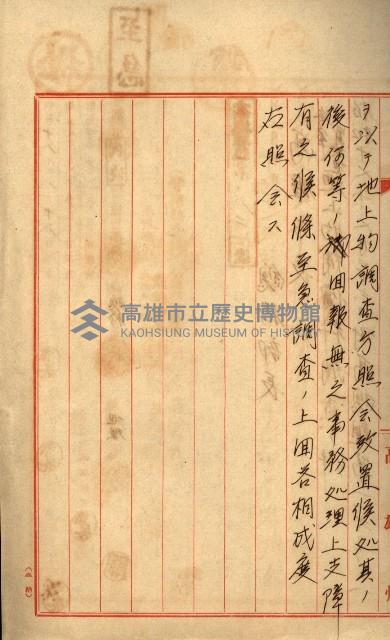 ヲ以テ地上物調査方照会致置候処其ノ
後何等ノ回報無之事務処理上支障
有之候條至急調査ノ上回答相成度
右照会ス
至急
高雄市立歷史博物館
KAOHSIUNG MUSEUM OF HISTORY
高雄州